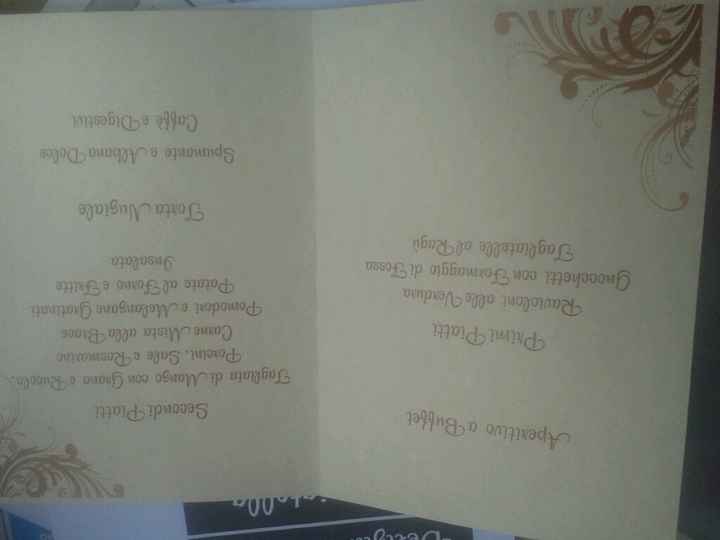 Aperitivo a Buffet
Primi Piatti
Ravioloni alle Verdure
Gnocchetti con Formaggio di Fossa
Tagliatelle al Ragù
Secondi Piatti
Tagliata di Manzo con Grana e Rucola,
Porcini, Sale e Rosmarino
Carne Mista alla Brace
Pomodori e Melanzane Gratinati
Patate al Forno e Fritte
Insalata
Torta Nuziale
Spumante e Albana Dolce
Caffè e Digestivi